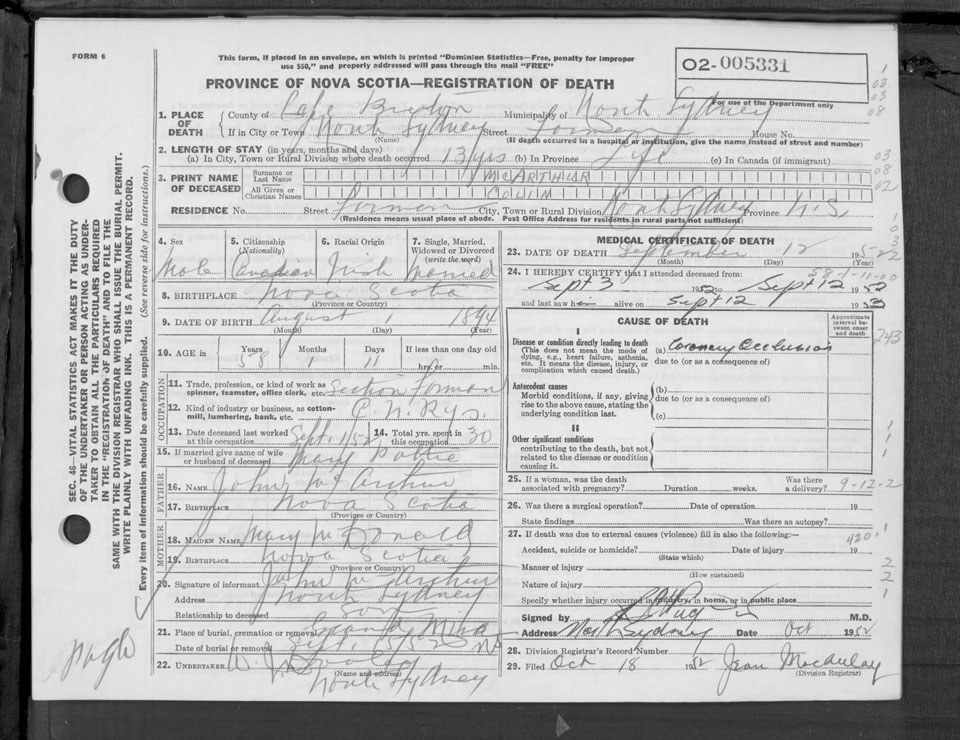 FORM 6
This form, if placed in an envelope, on which is printed "Dominion Statistics—Free, penalty for improper
use $50," and properly addressed will pass through the mail "FREE"
O2-005331
PROVINCE OF NOVA SCOTIA—REGISTRATION OF DEATH
For use of the Department only
1. PLACE OF DEATH
County of Cape Breton Municipality of North Sydney
If in City or Town North Sydney Street House No.
(Name) (If death occurred in a hospital or institution, give the name instead of street and number)
2. LENGTH OF STAY (in years, months and days)
(a) In City, Town or Rural Division where death occurred 13 yrs (b) In Province Life (c) In Canada (if immigrant)
3. PRINT NAME OF DECEASED
Surname or Last Name McARTHUR
All Given or Christian Names
RESIDENCE No. Street City, Town or Rural Division North Sydney Province N.S.
(Residence means usual place of abode. Post Office Address for residents in rural parts not sufficient)
4. Sex
Male
5. Citizenship (Nationality)
Canadian
6. Racial Origin
Irish
7. Single, Married, Widowed or Divorced (write the word)
Married
8. BIRTHPLACE Nova Scotia
(Province or Country)
9. DATE OF BIRTH August 1 1894
(Month) (Day) (Year)
10. AGE in Years Months Days If less than one day
58 1 11 hrs. or min.
OCCUPATION
11. Trade, profession, or kind of work as spinner, teamster, office clerk, etc. Section Forman
12. Kind of industry or business, as cotton-mill, lumbering, bank, etc. C. N. Rys.
13. Date deceased last worked at this occupation Sept. 1/52
14. Total yrs. spent in this occupation 30
15. If married give name of wife or husband of deceased Mary
FATHER
16. NAME John McArthur
17. BIRTHPLACE Nova Scotia
(Province or Country)
MOTHER
18. MAIDEN NAME Mary McDonald
19. BIRTHPLACE Nova Scotia
(Province or Country)
20. Signature of informant John McArthur
Address North Sydney
Relationship to deceased Son
21. Place of burial, cremation or removal
Date of burial or removal Sept. 15/52
22. UNDERTAKER
(Name and address)
North Sydney
MEDICAL CERTIFICATE OF DEATH
23. DATE OF DEATH September 12 1952
(Month) (Day) (Year)
58-1-11-00
24. I HEREBY CERTIFY that I attended deceased from:
Sept 3 1952 to Sept 12 1952
and last saw h alive on Sept 12 195
CAUSE OF DEATH
Approximate interval between onset and death
I
Disease or condition directly leading to death
(This does not mean the mode of dying, e.g., heart failure, asthenia, etc. It means the disease, injury, or complication which caused death.)
(a) Coronary Occlusion
due to (or as a consequence of)
Antecedent causes
Morbid conditions, if any, giving rise to the above cause, stating the underlying condition last.
(b)
due to (or as a consequence of)
(c)
II
Other significant conditions
contributing to the death, but not related to the disease or condition causing it.
243
25. If a woman, was the death associated with pregnancy? Duration weeks. Was there a delivery? 9-12-2
26. Was there a surgical operation? Date of operation 19
State findings Was there an autopsy?
27. If death was due to external causes (violence) fill in also the following:—
420
Accident, suicide or homicide? Date of injury 19
(State which)
Manner of injury
(How sustained)
Nature of injury
Specify whether injury occurred in industry, in home, or in public place
Signed by M.D.
Address North Sydney Date Oct 1952
28. Division Registrar's Record Number
29. Filed Oct 18 1952 Jean Macaulay
(Division Registrar)
SEC. 46—VITAL STATISTICS ACT MAKES IT THE DUTY
OF THE UNDERTAKER OR PERSON ACTING AS UNDER-
TAKER TO OBTAIN ALL THE PARTICULARS REQUIRED
IN THE "REGISTRATION OF DEATH" AND TO FILE THE
SAME WITH THE DIVISION REGISTRAR WHO SHALL ISSUE THE BURIAL PERMIT.
WRITE PLAINLY WITH UNFADING INK. THIS IS A PERMANENT RECORD.
Every item of information should be carefully supplied. (See reverse side for instructions.)